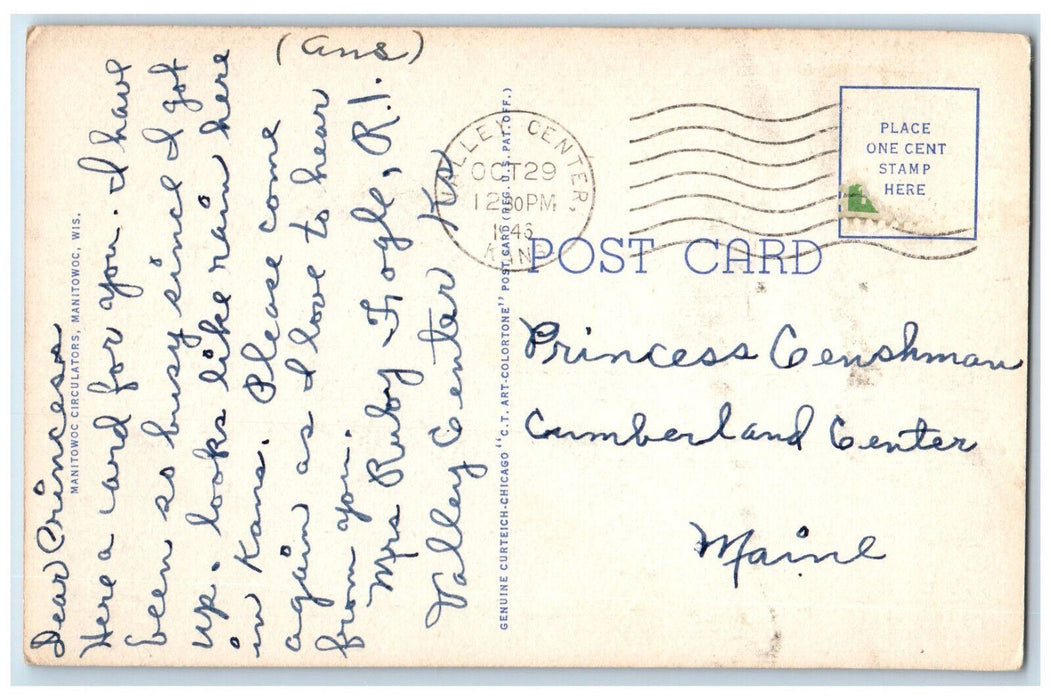 (ans)
Dear Princess
Here a card for you. I have
been so busy since I got
up. looks like rain here
in Kans. Please come
again as I love to hear
from you.
Mrs Ruby Fogle, R.1.
Valley Center Ks
MANITOWOC CIRCULATORS, MANITOWOC, WIS.
GENUINE CURTEICH-CHICAGO "C.T. ART-COLORTONE" POST CARD (REG. U.S. PAT. OFF.)
VALLEY CENTER,
OCT 29
12 30 PM
KAN
PLACE
ONE CENT
STAMP
HERE
POST CARD
Princess
Cumberland Center
Maine